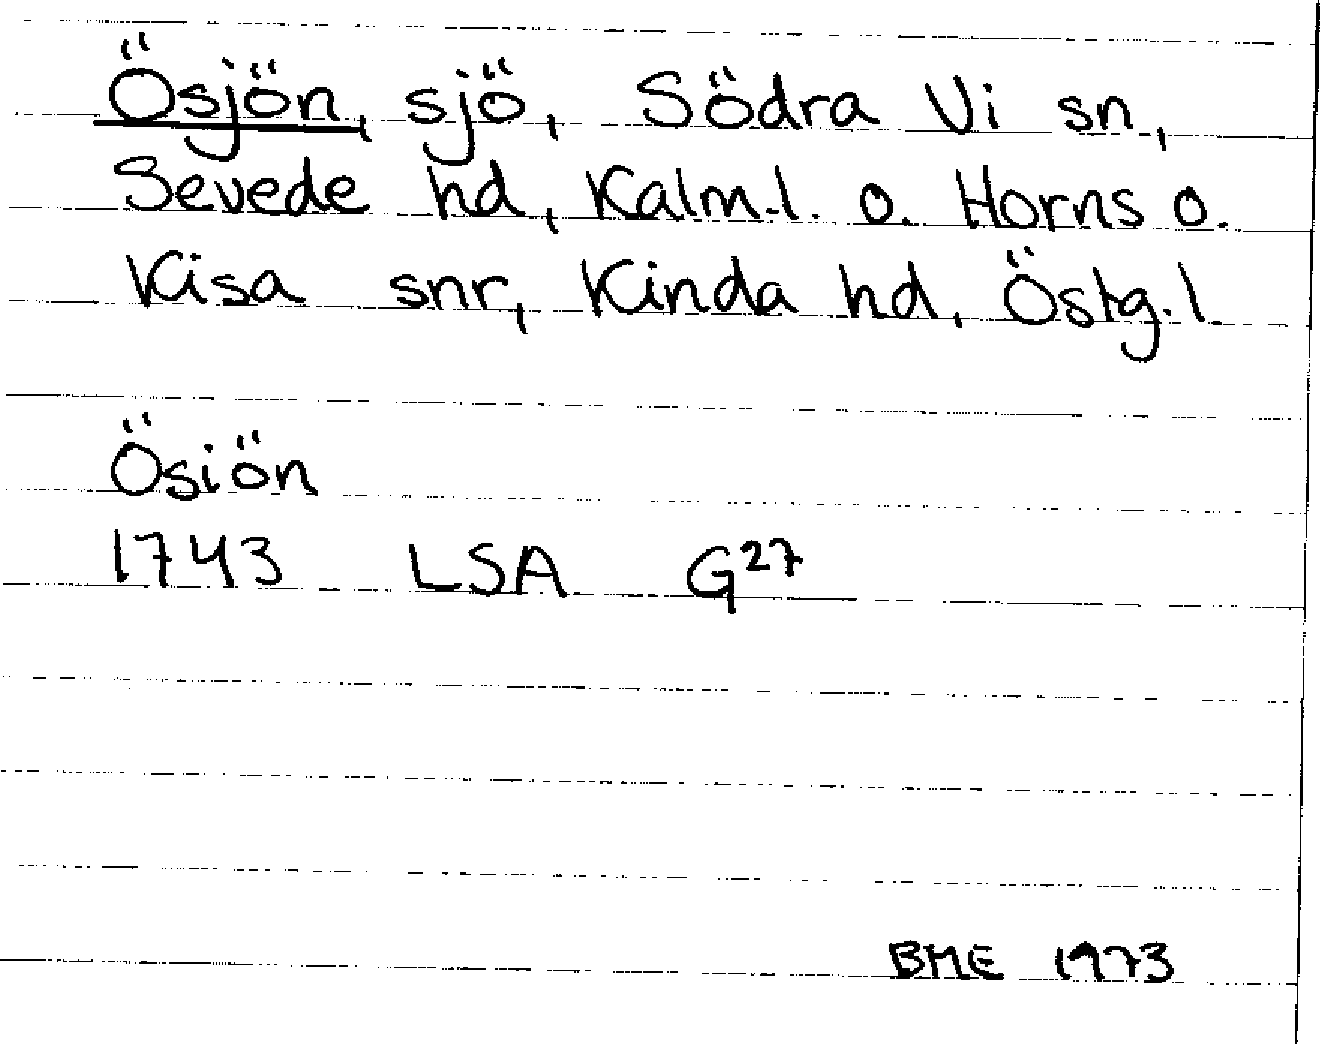 Ösjön, sjö, Södra Vi sn,
Sevede hd, Kalm.l. o. Horns o.
Kisa snr, Kinda hd, Östg.l.
Ösiön
1743 LSA G27
BME 1973